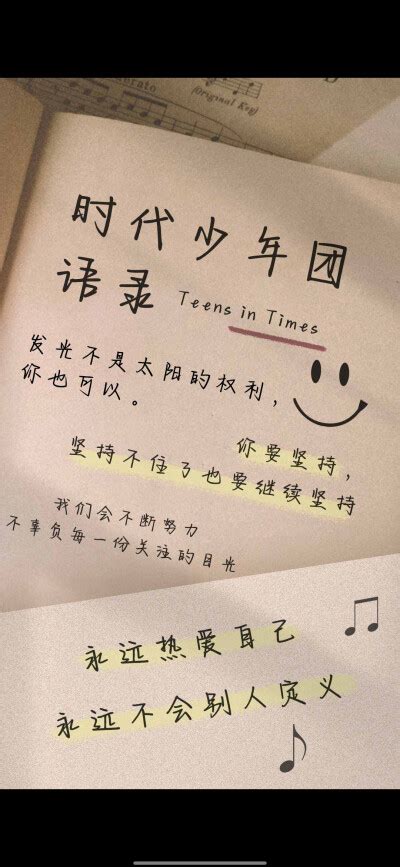 (Original Key)
时代少年团
语录 Teens in Times
发光不是太阳的权利，
你也可以。
你要坚持，
坚持不住了也要继续坚持
我们会不断努力
不辜负每一份关注的目光
永远热爱自己
永远不会别人定义